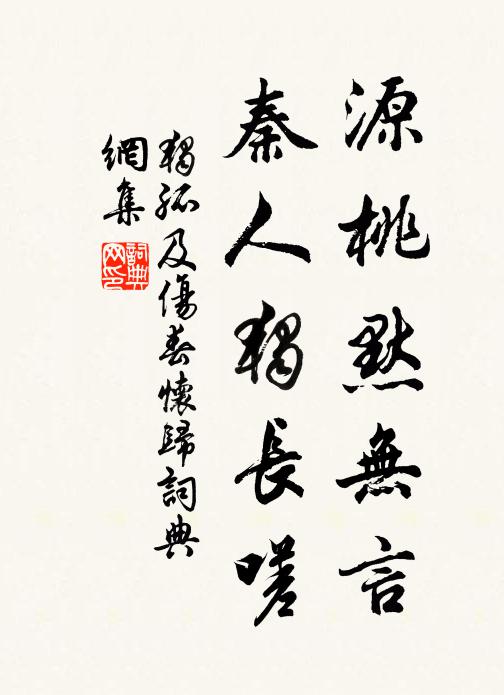 源桃默無言
秦人獨長嗟
獨孤及傷春懷歸詞典
網集
詞典網印